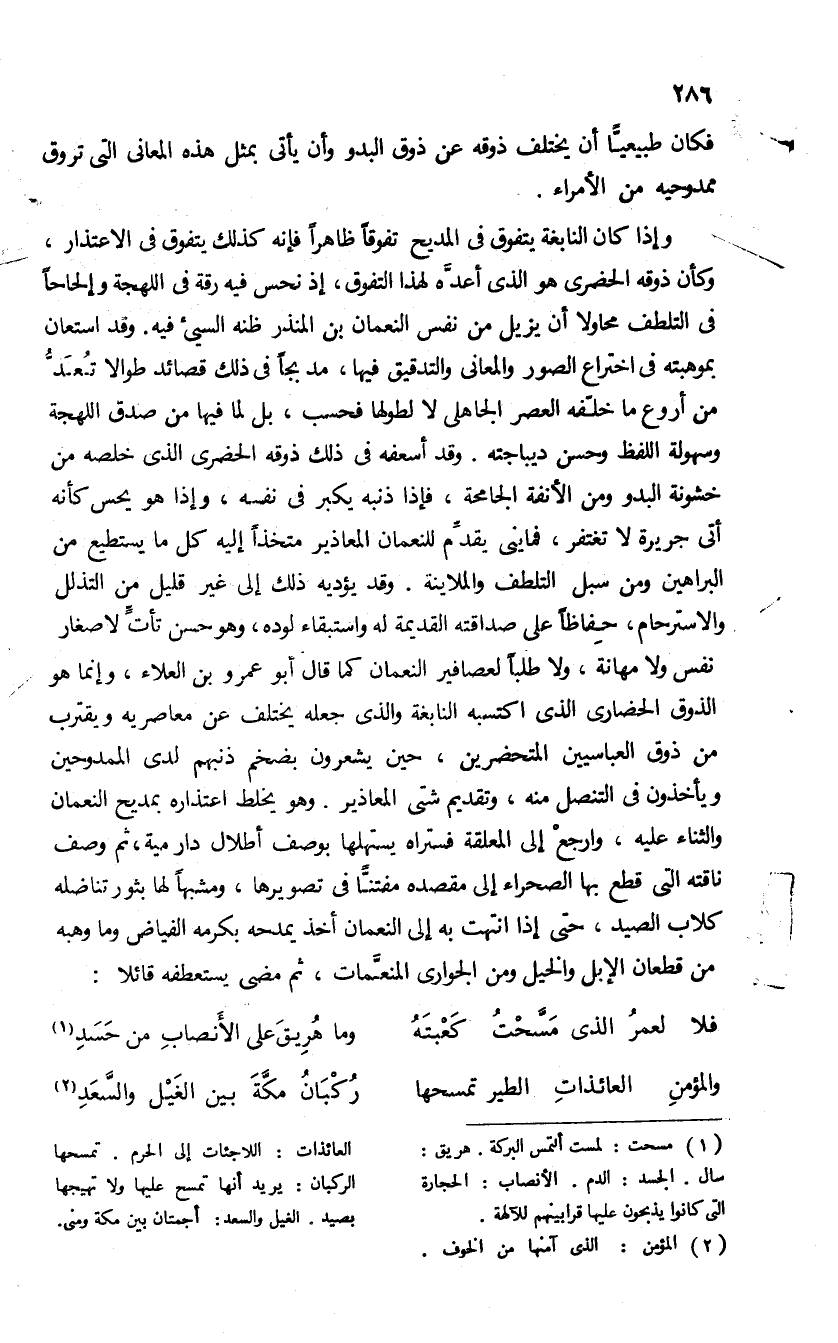 ٢٨٦
فكان طبيعيًّا أن يختلف ذوقه عن ذوق البدو وأن يأتى بمثل هذه المعانى التى تروق
ممدوحيه من الأمراء .
وإذا كان النابغة يتفوق فى المديح تفوقاً ظاهراً فإنه كذلك يتفوق فى الاعتذار ،
وكأن ذوقه الحضرى هو الذى أعدَّه لهذا التفوق ، إذ نحس فيه رقة فى اللهجة وإلحاحاً
فى التلطف محاولا أن يزيل من نفس النعمان بن المنذر ظنه السيئ فيه. وقد استعان
بموهبته فى اختراع الصور والمعانى والتدقيق فيها ، مدبجاً فى ذلك قصائد طوالا تُعَدُّ
من أروع ما خلَّفه العصر الجاهلى لا لطولها فحسب ، بل لما فيها من صدق اللهجة
وسهولة اللفظ وحسن ديباجته . وقد أسعفه فى ذلك ذوقه الحضرى الذى خلصه من
خشونة البدو ومن الأنفة الجامحة ، فإذا ذنبه يكبر فى نفسه ، وإذا هو يحس كأنه
أتى جريرة لا تغتفر ، فماينى يقدِّم للنعمان المعاذير متخذاً إليه كل ما يستطيع من
البراهين ومن سبل التلطف والملاينة . وقد يؤديه ذلك إلى غير قليل من التذلل
والاسترحام، حِفاظاً على صداقته القديمة له واستبقاء لوده، وهو حسن تأتٍّ لاصغار
نفس ولا مهانة ، ولا طلباً لعصافير النعمان كما قال أبو عمرو بن العلاء ، وإنما هو
الذوق الحضارى الذى اكتسبه النابغة والذى جعله يختلف عن معاصريه ويقترب
من ذوق العباسيين المتحضرين ، حين يشعرون بضخم ذنبهم لدى الممدوحين
ويأخذون فى التنصل منه ، وتقديم شتى المعاذير . وهو يخلط اعتذاره بمديح النعمان
والثناء عليه ، وارجعْ إلى المعلقة فستراه يستهلها بوصف أطلال دار مية، ثم وصف
ناقته التى قطع بها الصحراء إلى مقصده مفتنًّا فى تصويرها ، ومشبهاً لها بثور تناضله
كلاب الصيد ، حتى إذا انتهت به إلى النعمان أخذ يمدحه بكرمه الفياض وما وهبه
من قطعان الإبل والخيل ومن الجوارى المنعَّمات ، ثم مضى يستعطفه قائلا :
فلا لعمرُ الذى مَسَّحْتُ كَعْبتَهُ وما هُرِيقَ على الأَنصابِ من جَسَدِ(١)
والمؤمنِ العائذاتِ الطير تمسحها رُكْبَانُ مكَّةَ بين الغَيْل والسَّعَدِ(٢)
(١) مسحت : لمست ألتمس البركة . هريق :
سال . الجسد : الدم . الأنصاب : الحجارة
التى كانوا يذبحون عليها قرابينهم للآلهة .
(٢) المؤمن : الذى آمنها من الخوف .
العائذات : اللاجئات إلى الحرم . تمسحها
الركبان : يريد أنها تمسح عليها ولا تهيجها
بصيد . الغيل والسعد: أجمتان بين مكة ومنى.